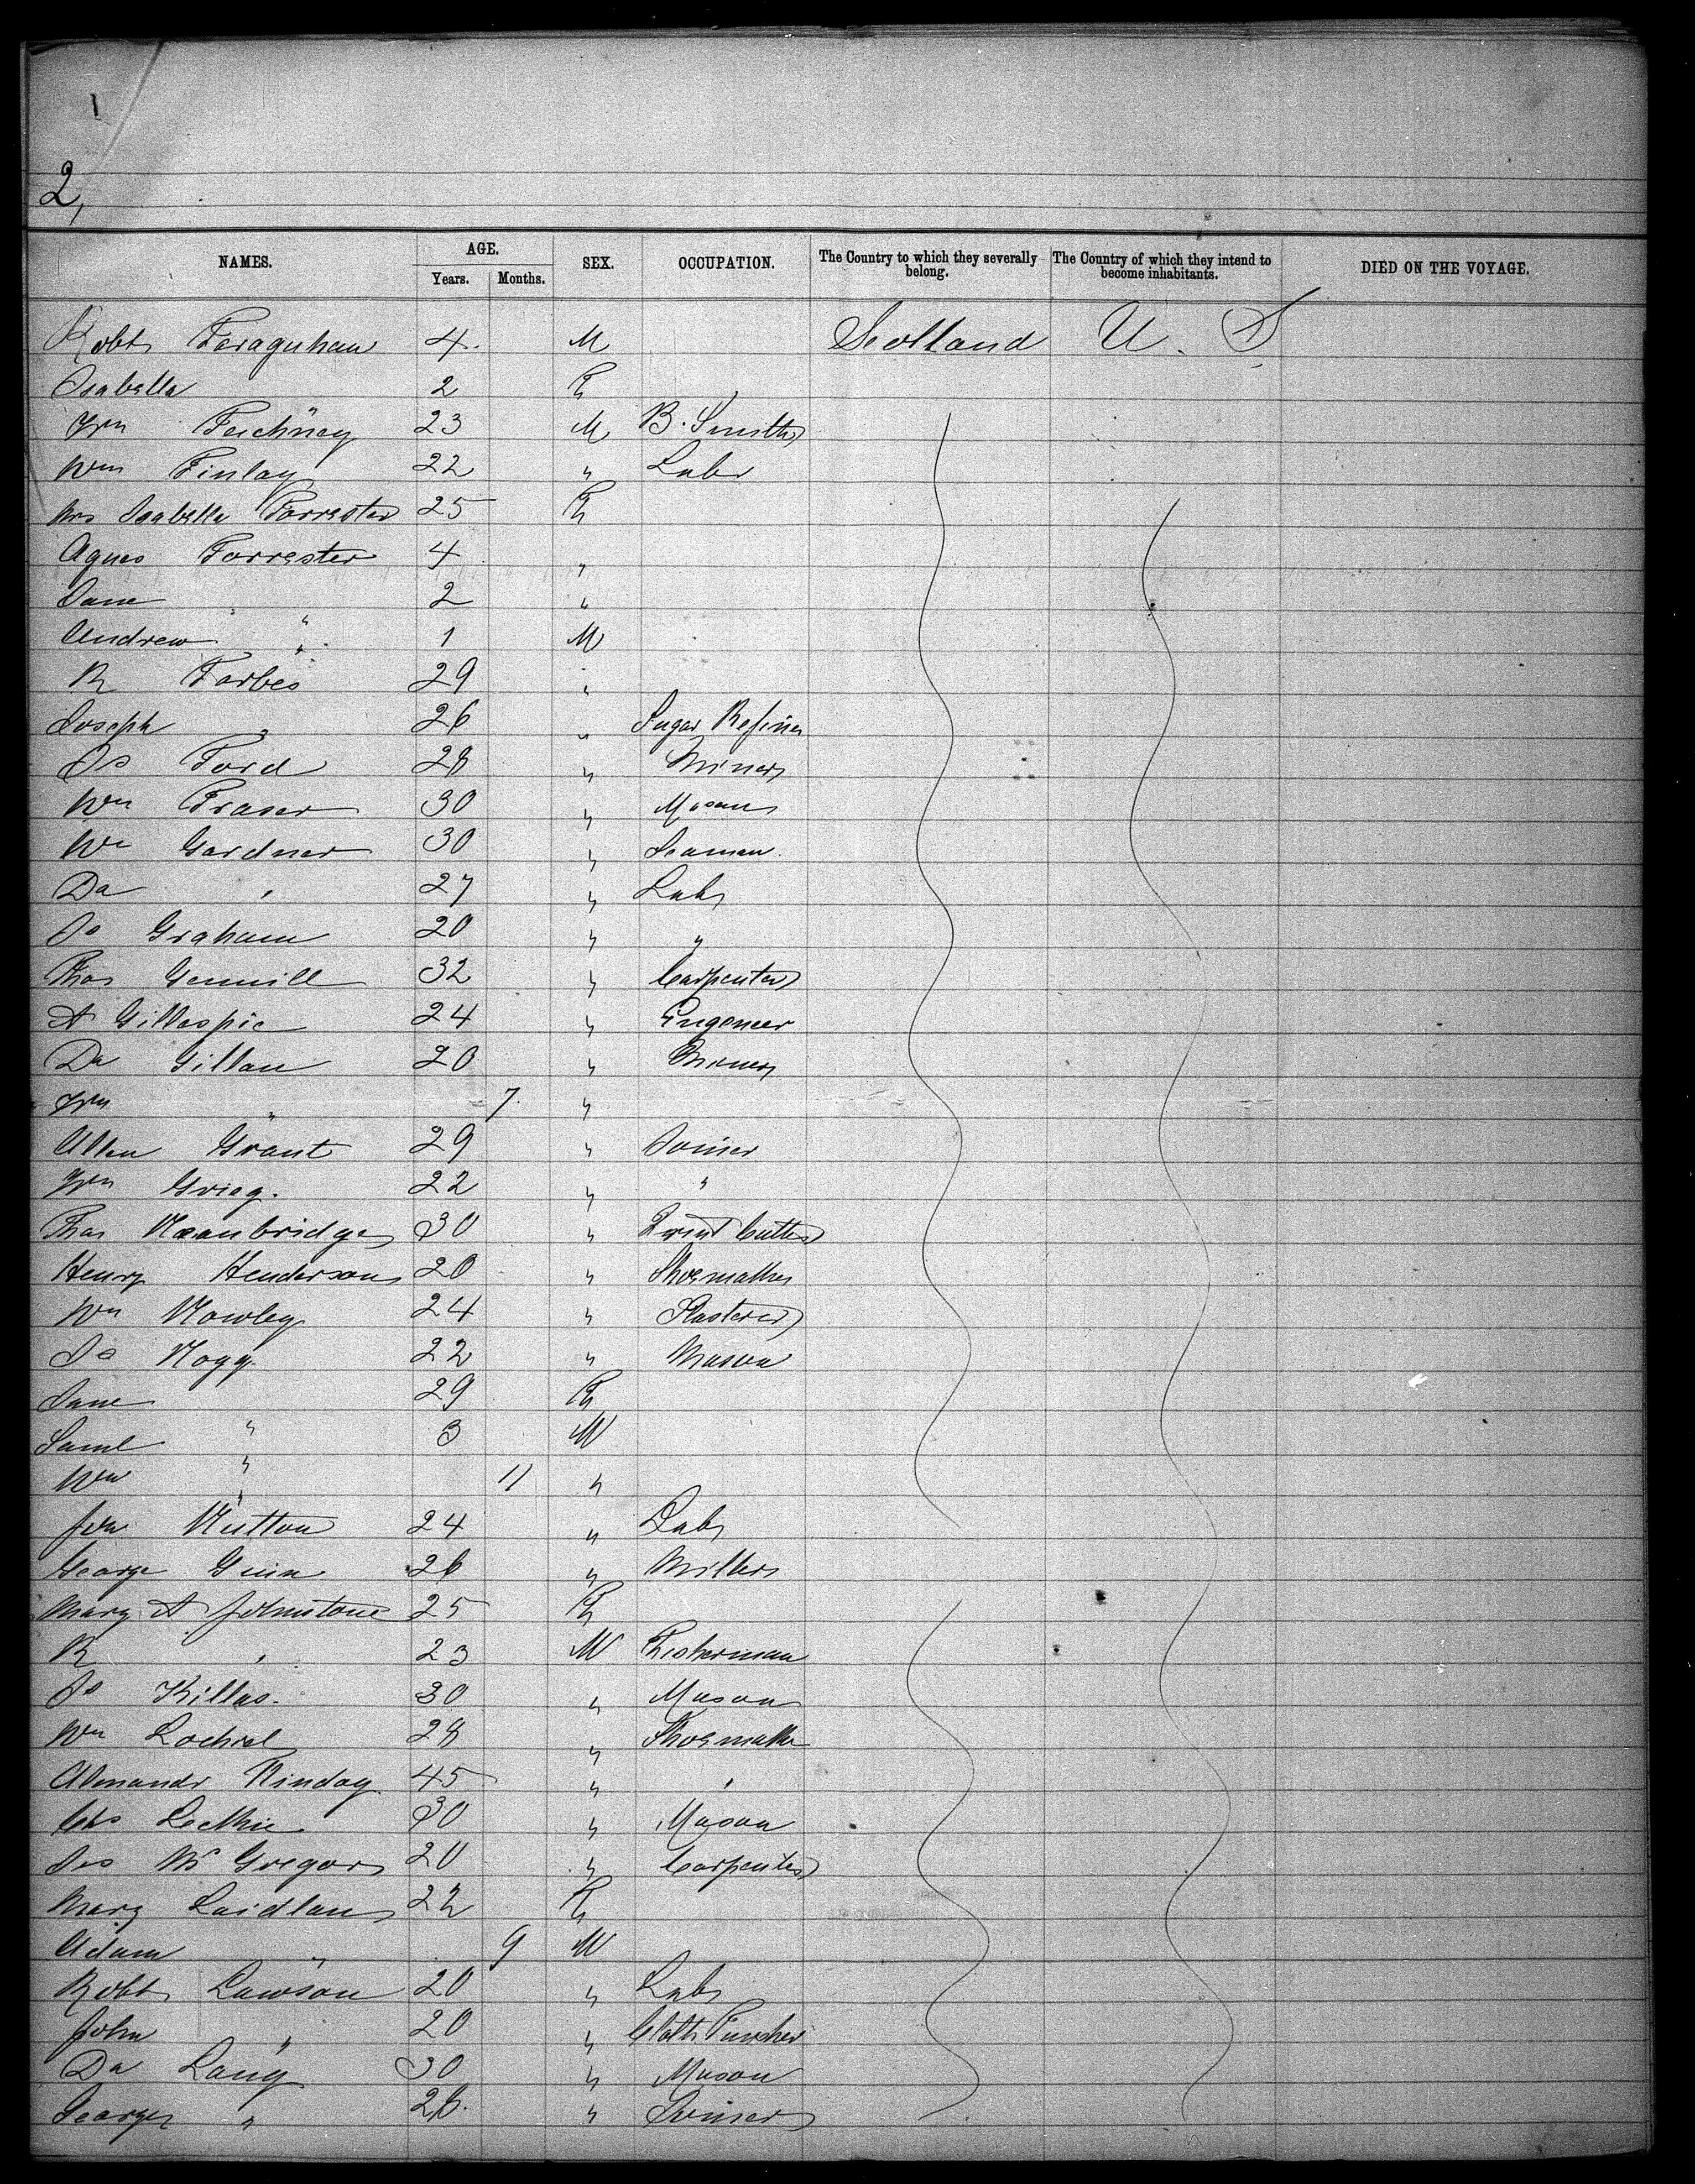 1
2,
NAMES. AGE. SEX. OCCUPATION. The Country to which they severally belong. The Country of which they intend to become inhabitants. DIED ON THE VOYAGE.
Years. Months.
Robt Faraguhan 4 M Scotland U. S
Isabella 2 F
Wm 23 M B. Smith
Wm Finlay 22 " Labr
Mrs Isabella Forrester 25 F
Agnes Forrester 4 "
Jane " 2 "
Andrew " 1 M
R Forbes 29 "
Joseph " 26 " Sugar Refiner
Js Ford 28 " Miner
Wm Fraser 30 " Mason
Wm Gardner 30 " Seaman
Da " 27 " Labr
Js Graham 20 " "
Thos Gemmill 32 " Carpenter
A Gillespie 24 " Engeneer
Da Gillan 20 " Miner
Wm " 7 "
Allen Grant 29 " Joiner
Wm Grieg. 22 " "
Thos 30 " Print Cutter
Henry Henderson 20 " Shoemaker
Wm Howley 24 " Plasterer
Js Hogg 22 " Mason
Jane 29 F
Saml " 3 M
Wm " 11 "
Jon Hutton 24 " Labr
George Guin 26 " Miller
Mary A Johnstone 25 F
R " 23 M Fisherman
Js Killas. 30 " Mason
Wm Lochiel 28 " Shoemaker
45 " "
Chs Leckie 30 " Mason
Jas Mc Gregor 20 " Carpenter
Mary Laidlaw 22 F
Adam " 9 M
Robt Lawson 20 " Labr
John " 20 " Cloth
Da Lang 30 " Mason
George " 26. " Joiner